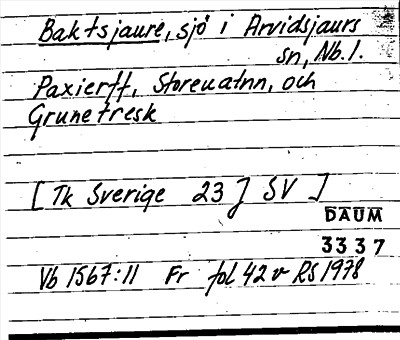 Baktsjaure, sjö i Arvidsjaurs
sn, Nb. l.
Paxierff, Storeuatnn, och
Grunetresk
[Tk Sverige 23] SV]
DAUM
3337
Vb 1567:11 Fr fol 42 v RS 1978